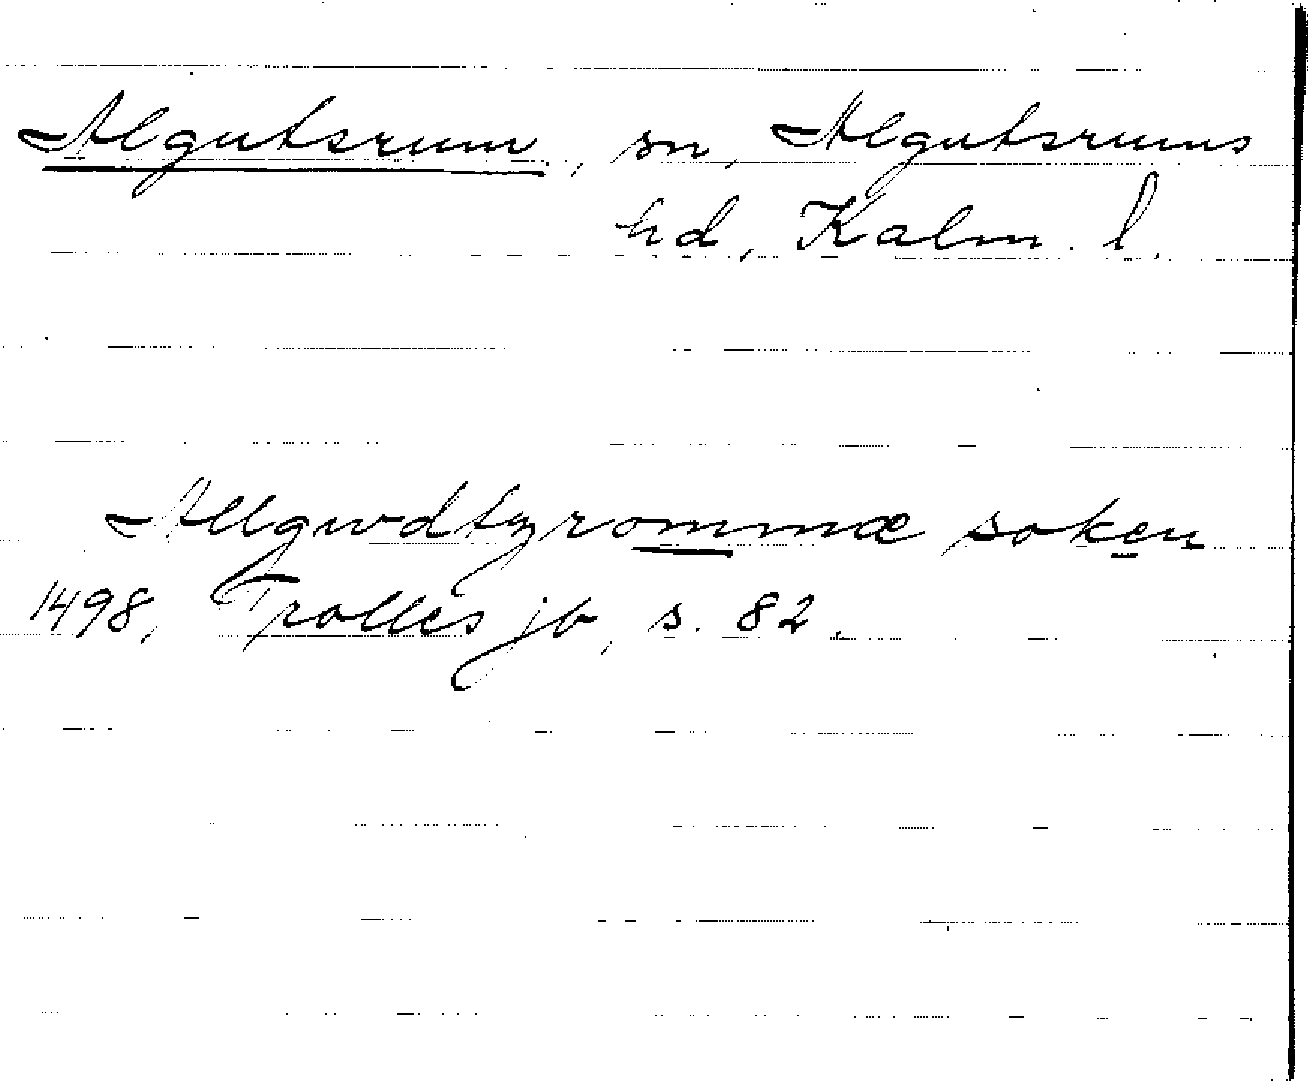 Algutsrum, sn, Algutsrums
hd, Kalm. l.
Allgwdtzrommæ soken
1498, Trolles jb, s. 82.